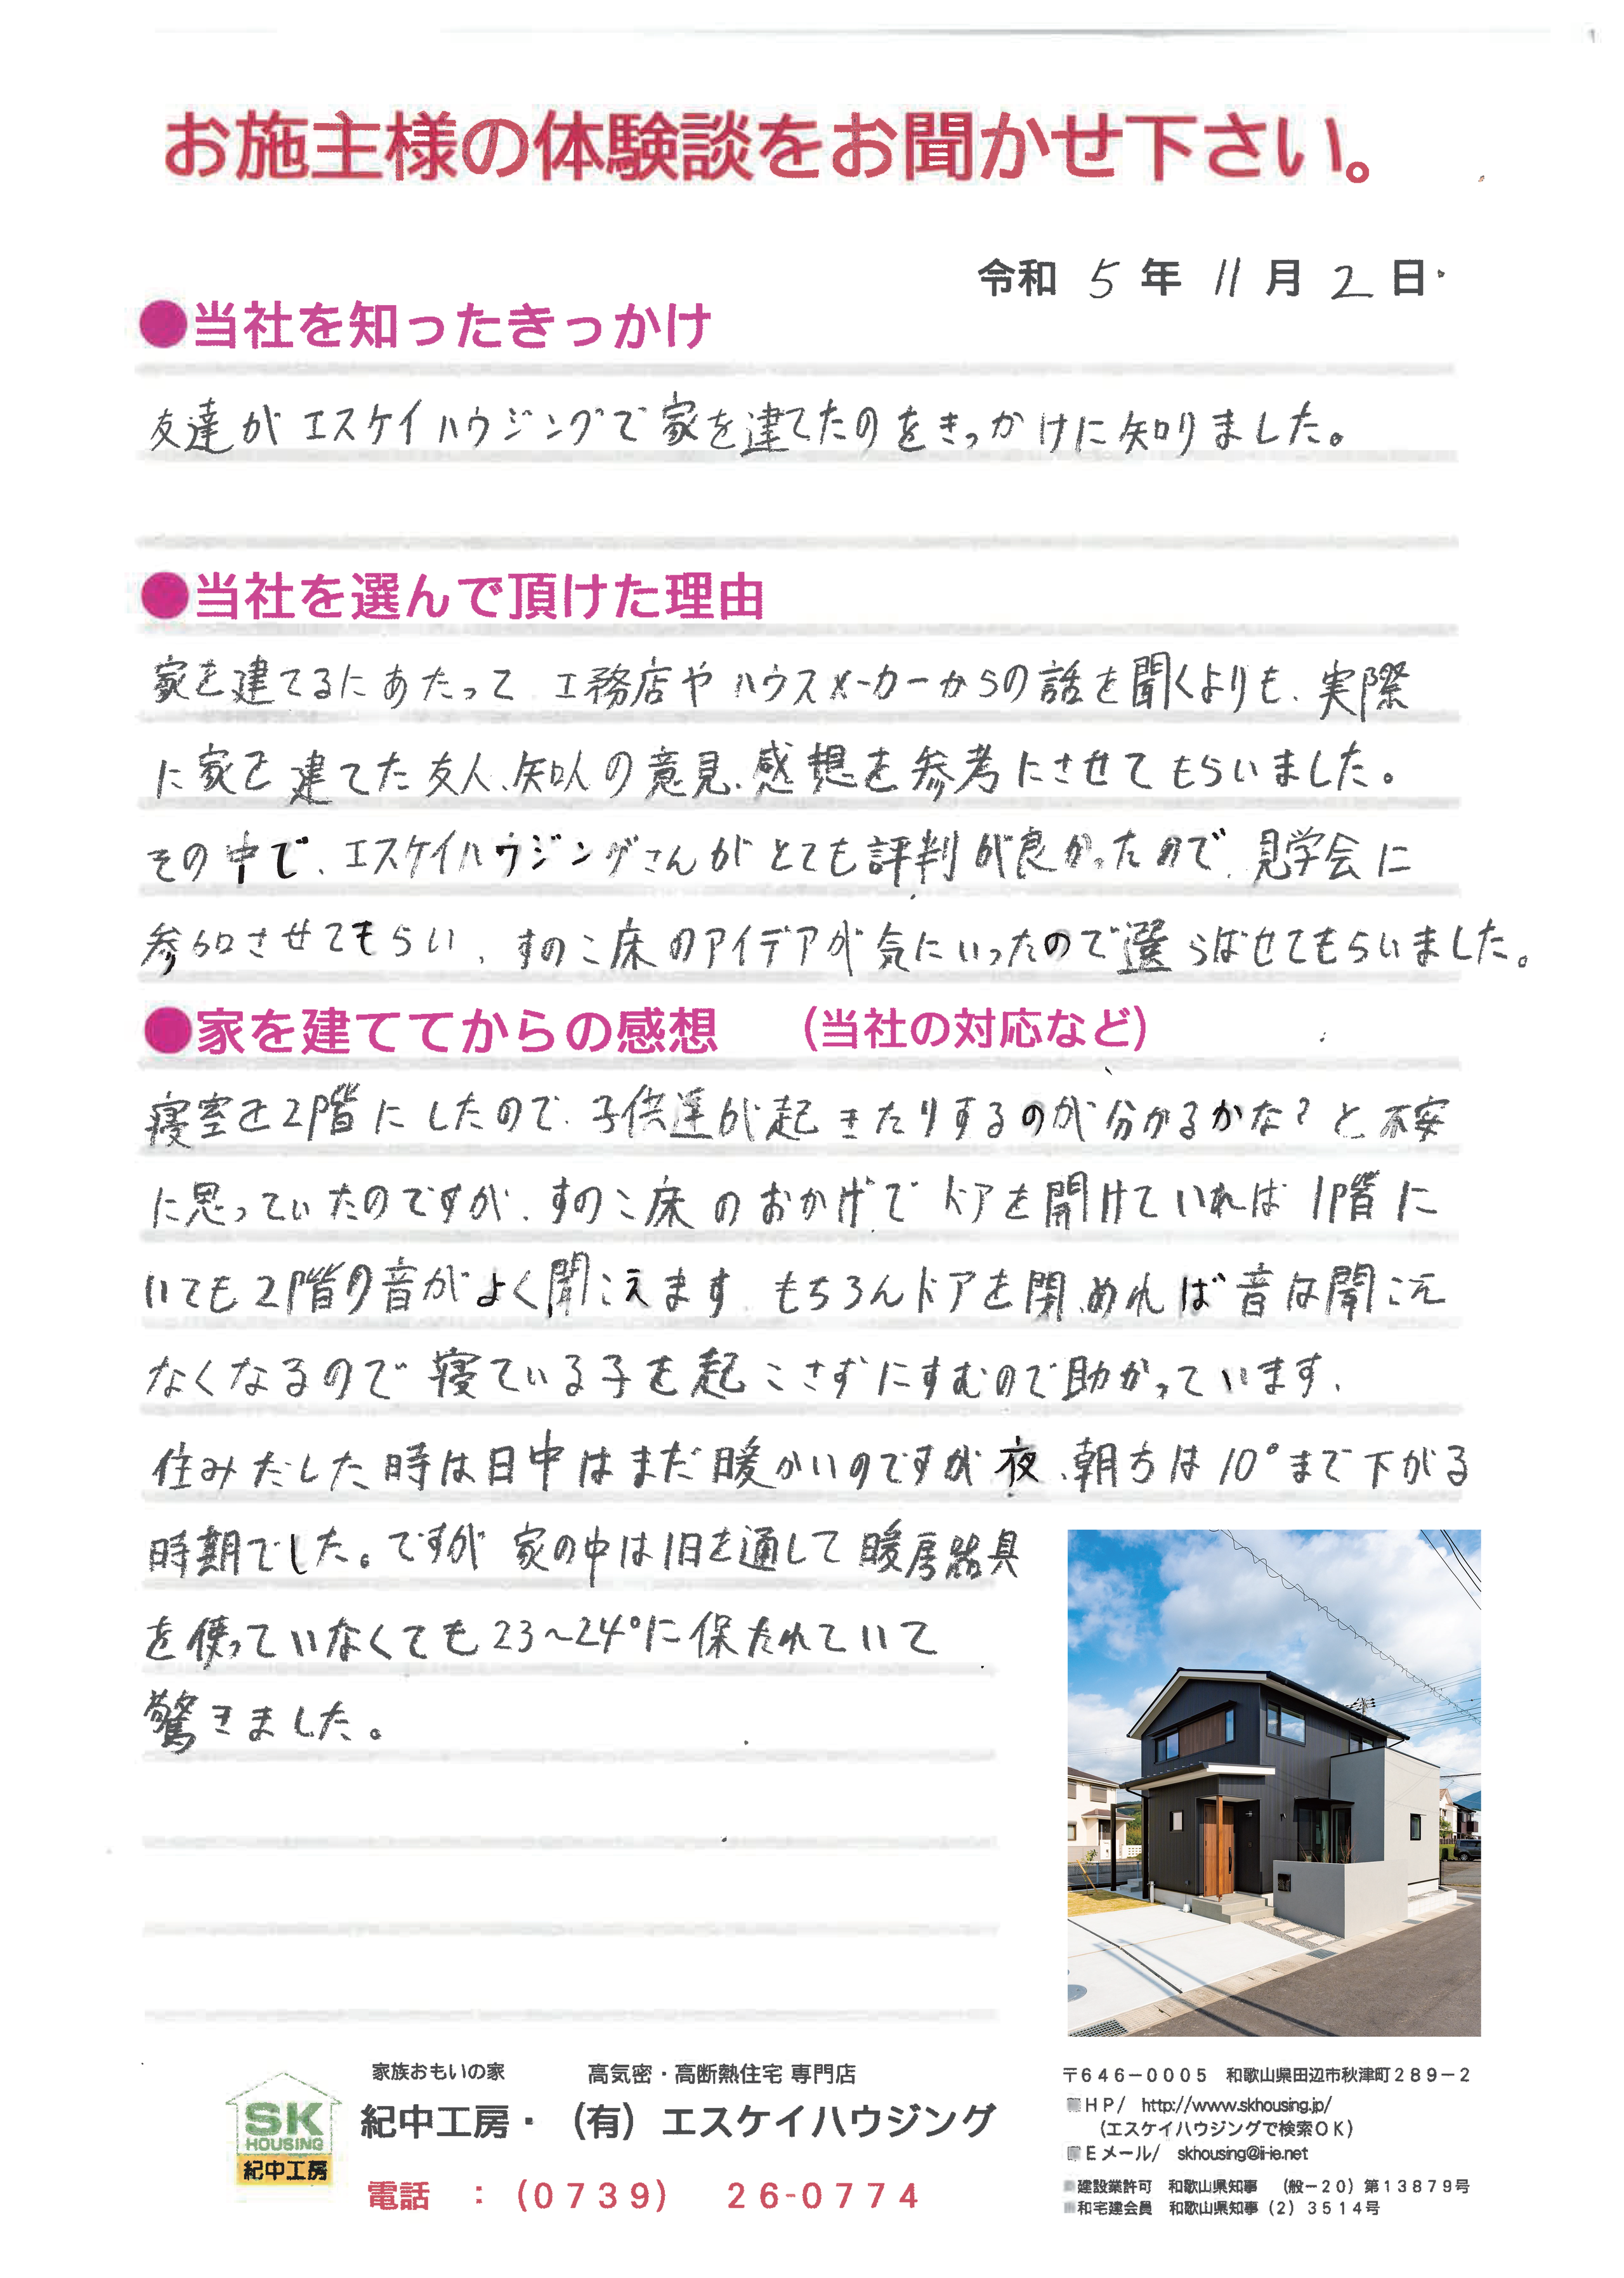 お施主様の体験談をお聞かせ下さい。
令和 5 年 11 月 2 日
●当社を知ったきっかけ
友達がエスケイハウジングで家を建てたのをきっかけに知りました。
●当社を選んで頂けた理由
家を建てるにあたって、工務店やハウスメーカーからの話を聞くよりも、実際
に家を建てた友人、知人の意見、感想を参考にさせてもらいました。
その中で、エスケイハウジングさんがとても評判が良かったので、見学会に
参加させてもらい、すのこ床のアイデアが気にいったので選らばせてもらいました。
●家を建ててからの感想 (当社の対応など)
寝室を2階にしたので、子供達が起きたりするのが分かるかな?と不安
に思っていたのですが、すのこ床のおかげでドアを開けていれば1階に
いても2階の音がよく聞こえます。もちろんドアを閉めれば音は聞こえ
なくなるので寝ている子を起こさずにすむので助かっています。
住みだした時は日中はまだ暖かいのですが夜、朝方は10°まで下がる
時期でした。ですが 家の中は1日を通して暖房器具
を使っていなくても23~24°に保たれていて
驚きました。
SK
HOUSING
紀中工房
家族おもいの家 高気密・高断熱住宅 専門店
紀中工房・(有)エスケイハウジング
電話 :(0739) 26-0774
〒646-0005 和歌山県田辺市秋津町289-2
■HP/ http://www.skhousing.jp/
(エスケイハウジングで検索OK)
■Eメール/ skhousing@ii-ie.net
■建設業許可 和歌山県知事 (般-20)第13879号
■和宅建会員 和歌山県知事(2)3514号